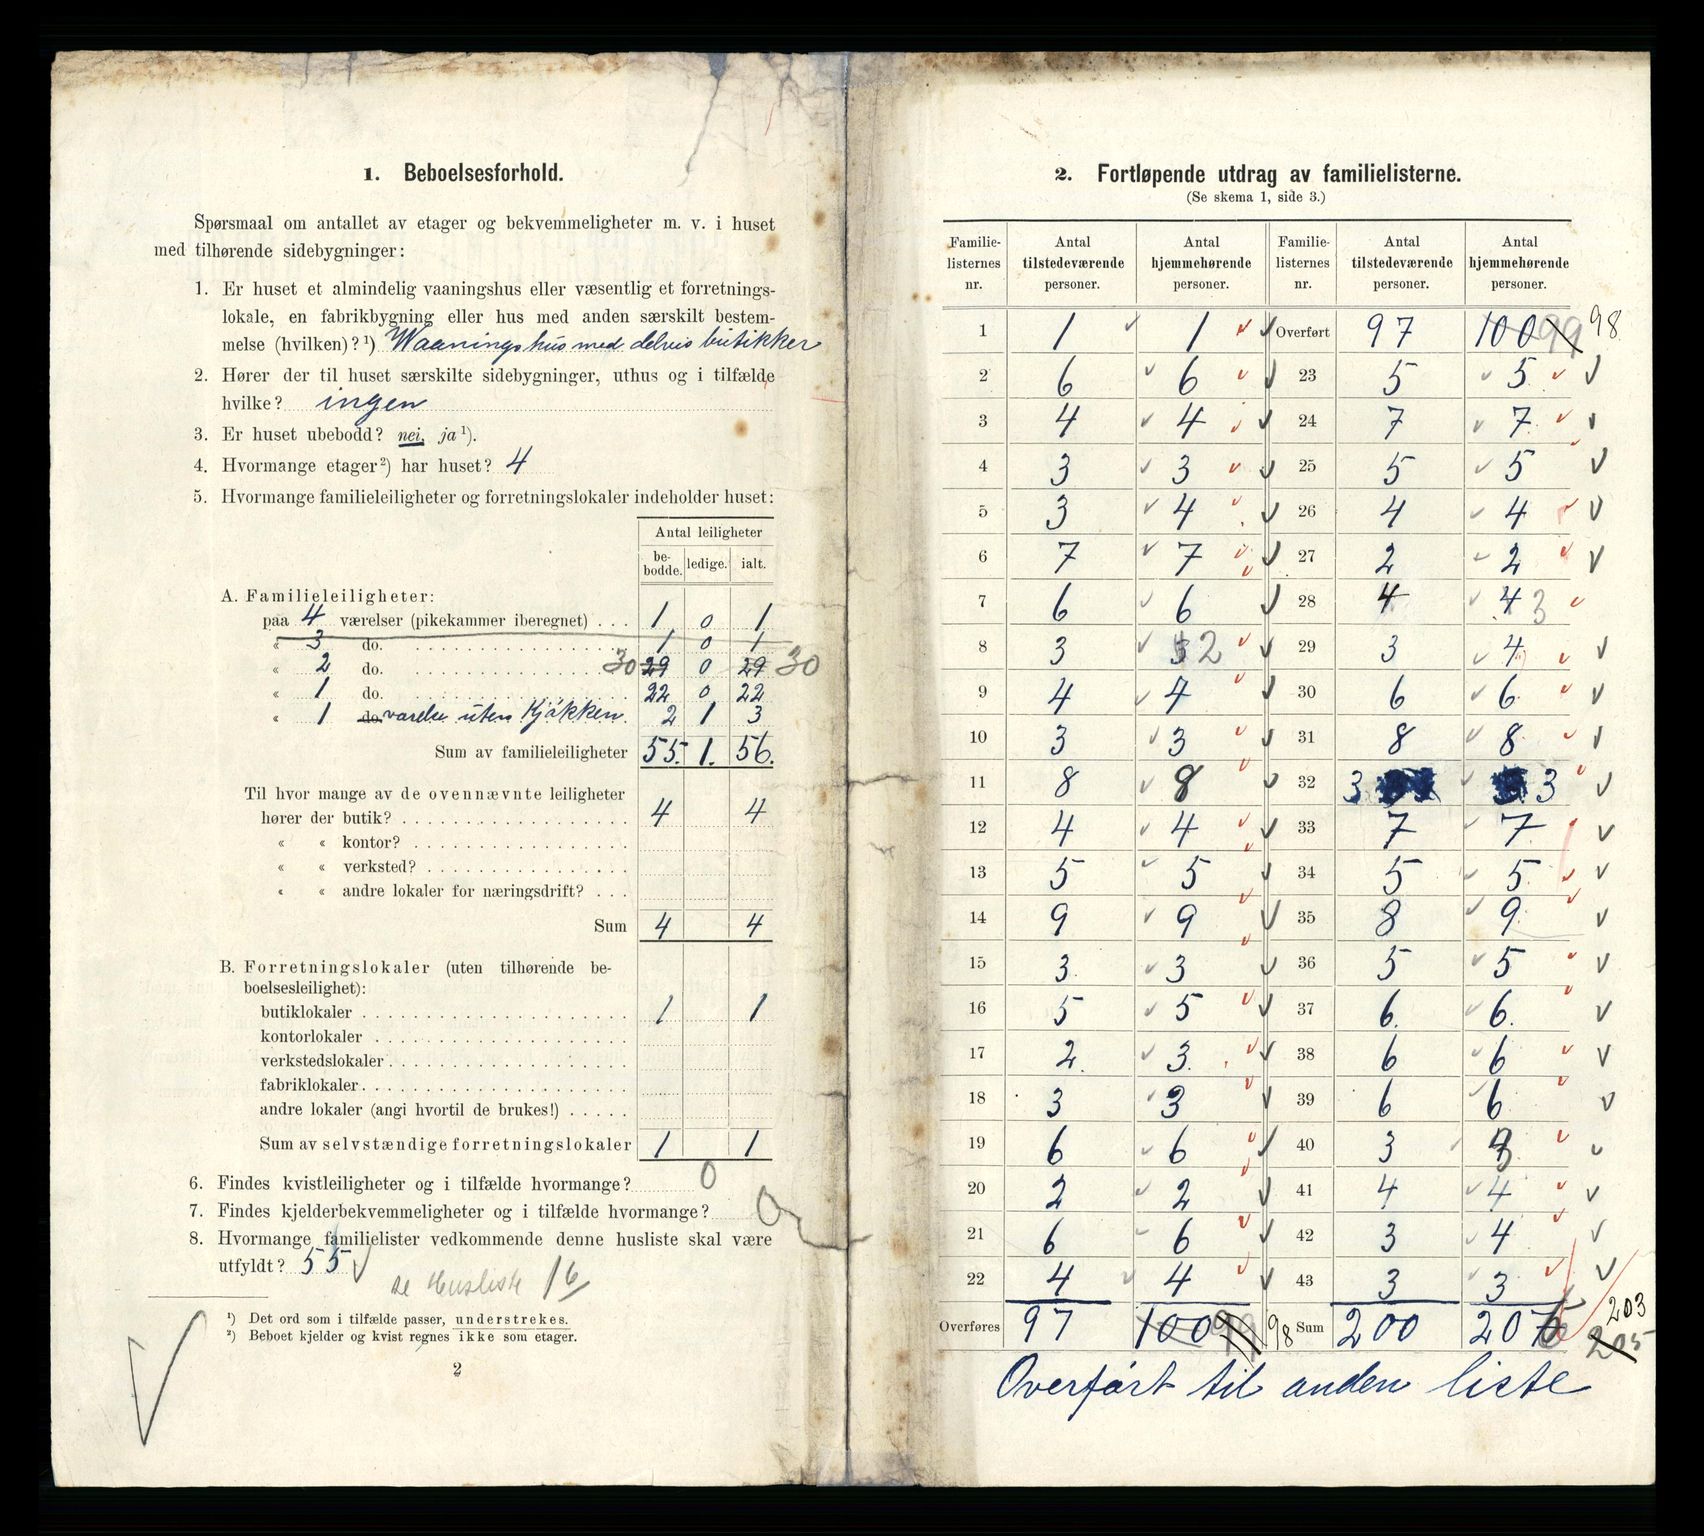 1. Beboelsesforhold.
Spørsmaal om antallet av etager og bekvemmeligheter m. v. i huset
med tilhørende sidebygninger:
1. Er huset et almindelig vaaningshus eller væsentlig et forretnings-
lokale, en fabrikbygning eller hus med anden særskilt bestem-
melse (hvilken)? ¹) Waaningshus med delvis butikker
2. Hører der til huset særskilte sidebygninger, uthus og i tilfælde
hvilke? ingen
3. Er huset ubebodd? nei, ja ¹).
4. Hvormange etager ²) har huset? 4
5. Hvormange familieleiligheter og forretningslokaler indeholder huset:
Antal leiligheter
be-bodde. ledige. ialt.
A. Familieleiligheter:
paa 4 værelser (pikekammer iberegnet) . . . 1 0 1
« 3 do. 1 0 1
« 2 do. 30 29 0 29 30
« 1 do. 22 0 22
« 1 do. værelse uten Kjøkken. 2 1 3
Sum av familieleiligheter 55. 1. 56.
Til hvor mange av de ovennævnte leiligheter
hører der butik? 4 4
« « kontor?
« « verksted?
« « andre lokaler for næringsdrift? . . .
Sum 4 4
B. Forretningslokaler (uten tilhørende be-
boelsesleilighet):
butiklokaler 1 1
kontorlokaler
verkstedslokaler
fabriklokaler
andre lokaler (angi hvortil de brukes!)
Sum av selvstændige forretningslokaler 1 1
6. Findes kvistleiligheter og i tilfælde hvormange? 0
7. Findes kjelderbekvemmeligheter og i tilfælde hvormange? 0
8. Hvormange familielister vedkommende denne husliste skal være
utfyldt? 55
se Husliste 16
¹) Det ord som i tilfælde passer, understrekes.
²) Beboet kjelder og kvist regnes ikke som etager.
2
2. Fortløpende utdrag av familielisterne.
(Se skema 1, side 3.)
Familie-listernes nr. Antal tilstedeværende personer. Antal hjemmehørende personer. Familie-listernes nr. Antal tilstedeværende personer. Antal hjemmehørende personer.
1 1 1 Overført 97 100 99 98
2 6 6 23 5 5
3 4 4 24 7 7
4 3 3 25 5 5
5 3 4 26 4 4
6 7 7 27 2 2
7 6 6 28 4 4 3
8 3 3 2 29 3 4
9 4 4 30 6 6
10 3 3 31 8 8
11 8 8 32 3 3
12 4 4 33 7 7
13 5 5 34 5 5
14 9 9 35 8 9
15 3 3 36 5 5
16 5 5 37 6 6
17 2 3 38 6 6
18 3 3 39 6 6
19 6 6 40 3 3
20 2 2 41 4 4
21 6 6 42 3 4
22 4 4 43 3 3
Overføres 97 100 99 98 Sum 200 207 205 203
Overført til anden liste